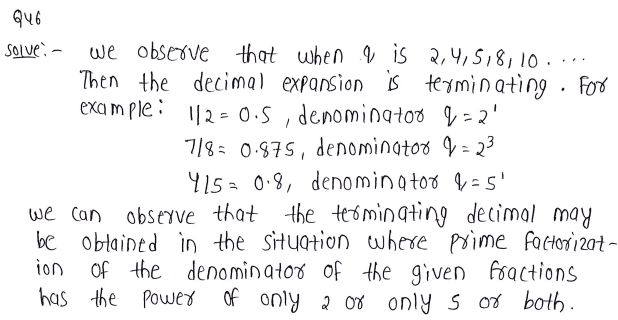 Q46
solve:- we observe that when q is 2,4,5,8,10.....
Then the decimal expansion is terminating. For
example: 1/2 = 0.5, denominator q = 2¹
7/8 = 0.875, denominator q = 2³
4/5 = 0.8, denominator q = 5¹
we can observe that the terminating decimal may
be obtained in the situation where prime factorizat-
ion of the denominator of the given fractions
has the power of only 2 or only 5 or both.